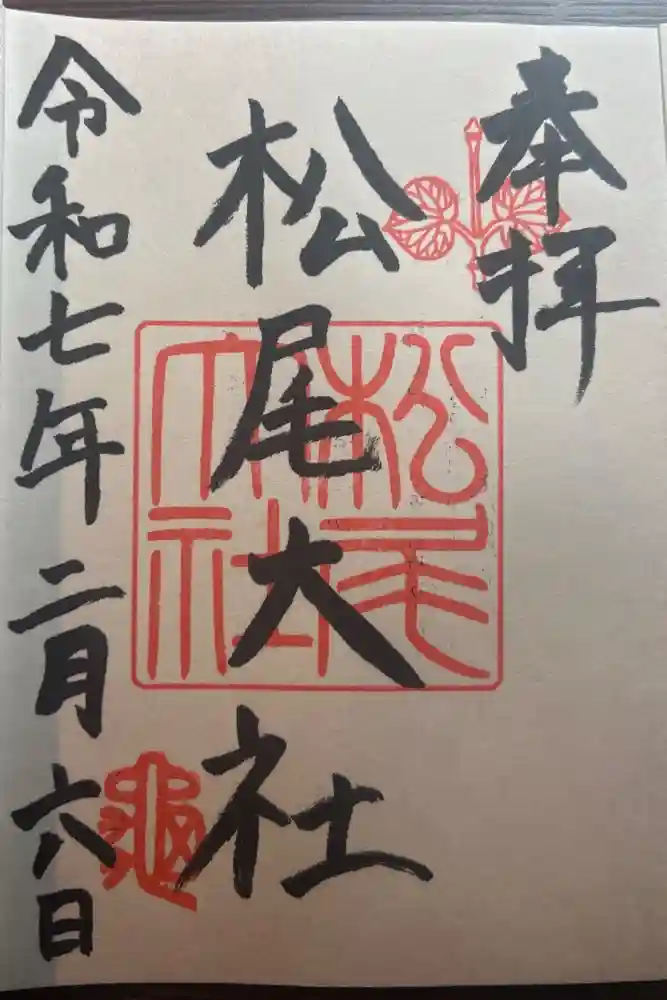 奉拝
松尾大社
松尾大社
令和七年二月六日
龜